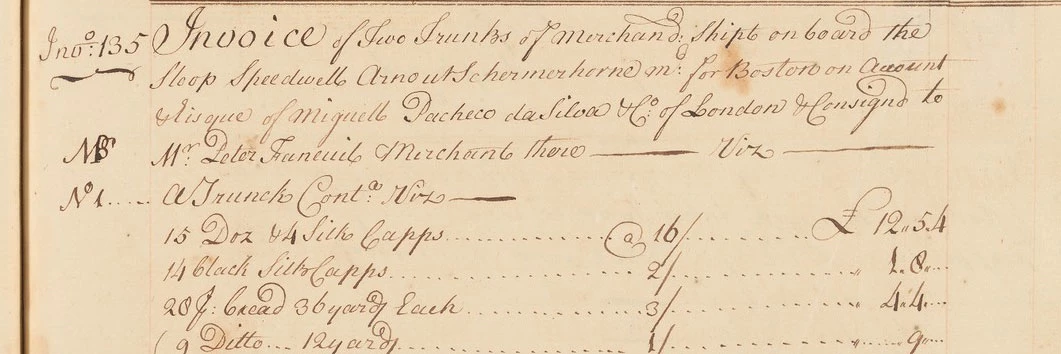 Invo: 135 Invoice of Two Trunks of Merchand: Shipt on board the
Sloop Speedwell Arnout Schermerhorne mr: for Boston on Account
& Risque of Miguell Pacheco da Silva & Co: of London & Consignd to
Mr. Peter Faneuil Merchant there Viz
No 1 A Trunck Conta. Viz
15 Doz & 4 Silk Capps @ 16/ £ 12„5„4
14 black Silk Capps 2/ „ 1„8„
28 ps: bread 36 yards Each 3/ „ 4„4„
9 Ditto 12 yards 1/ „ 9„